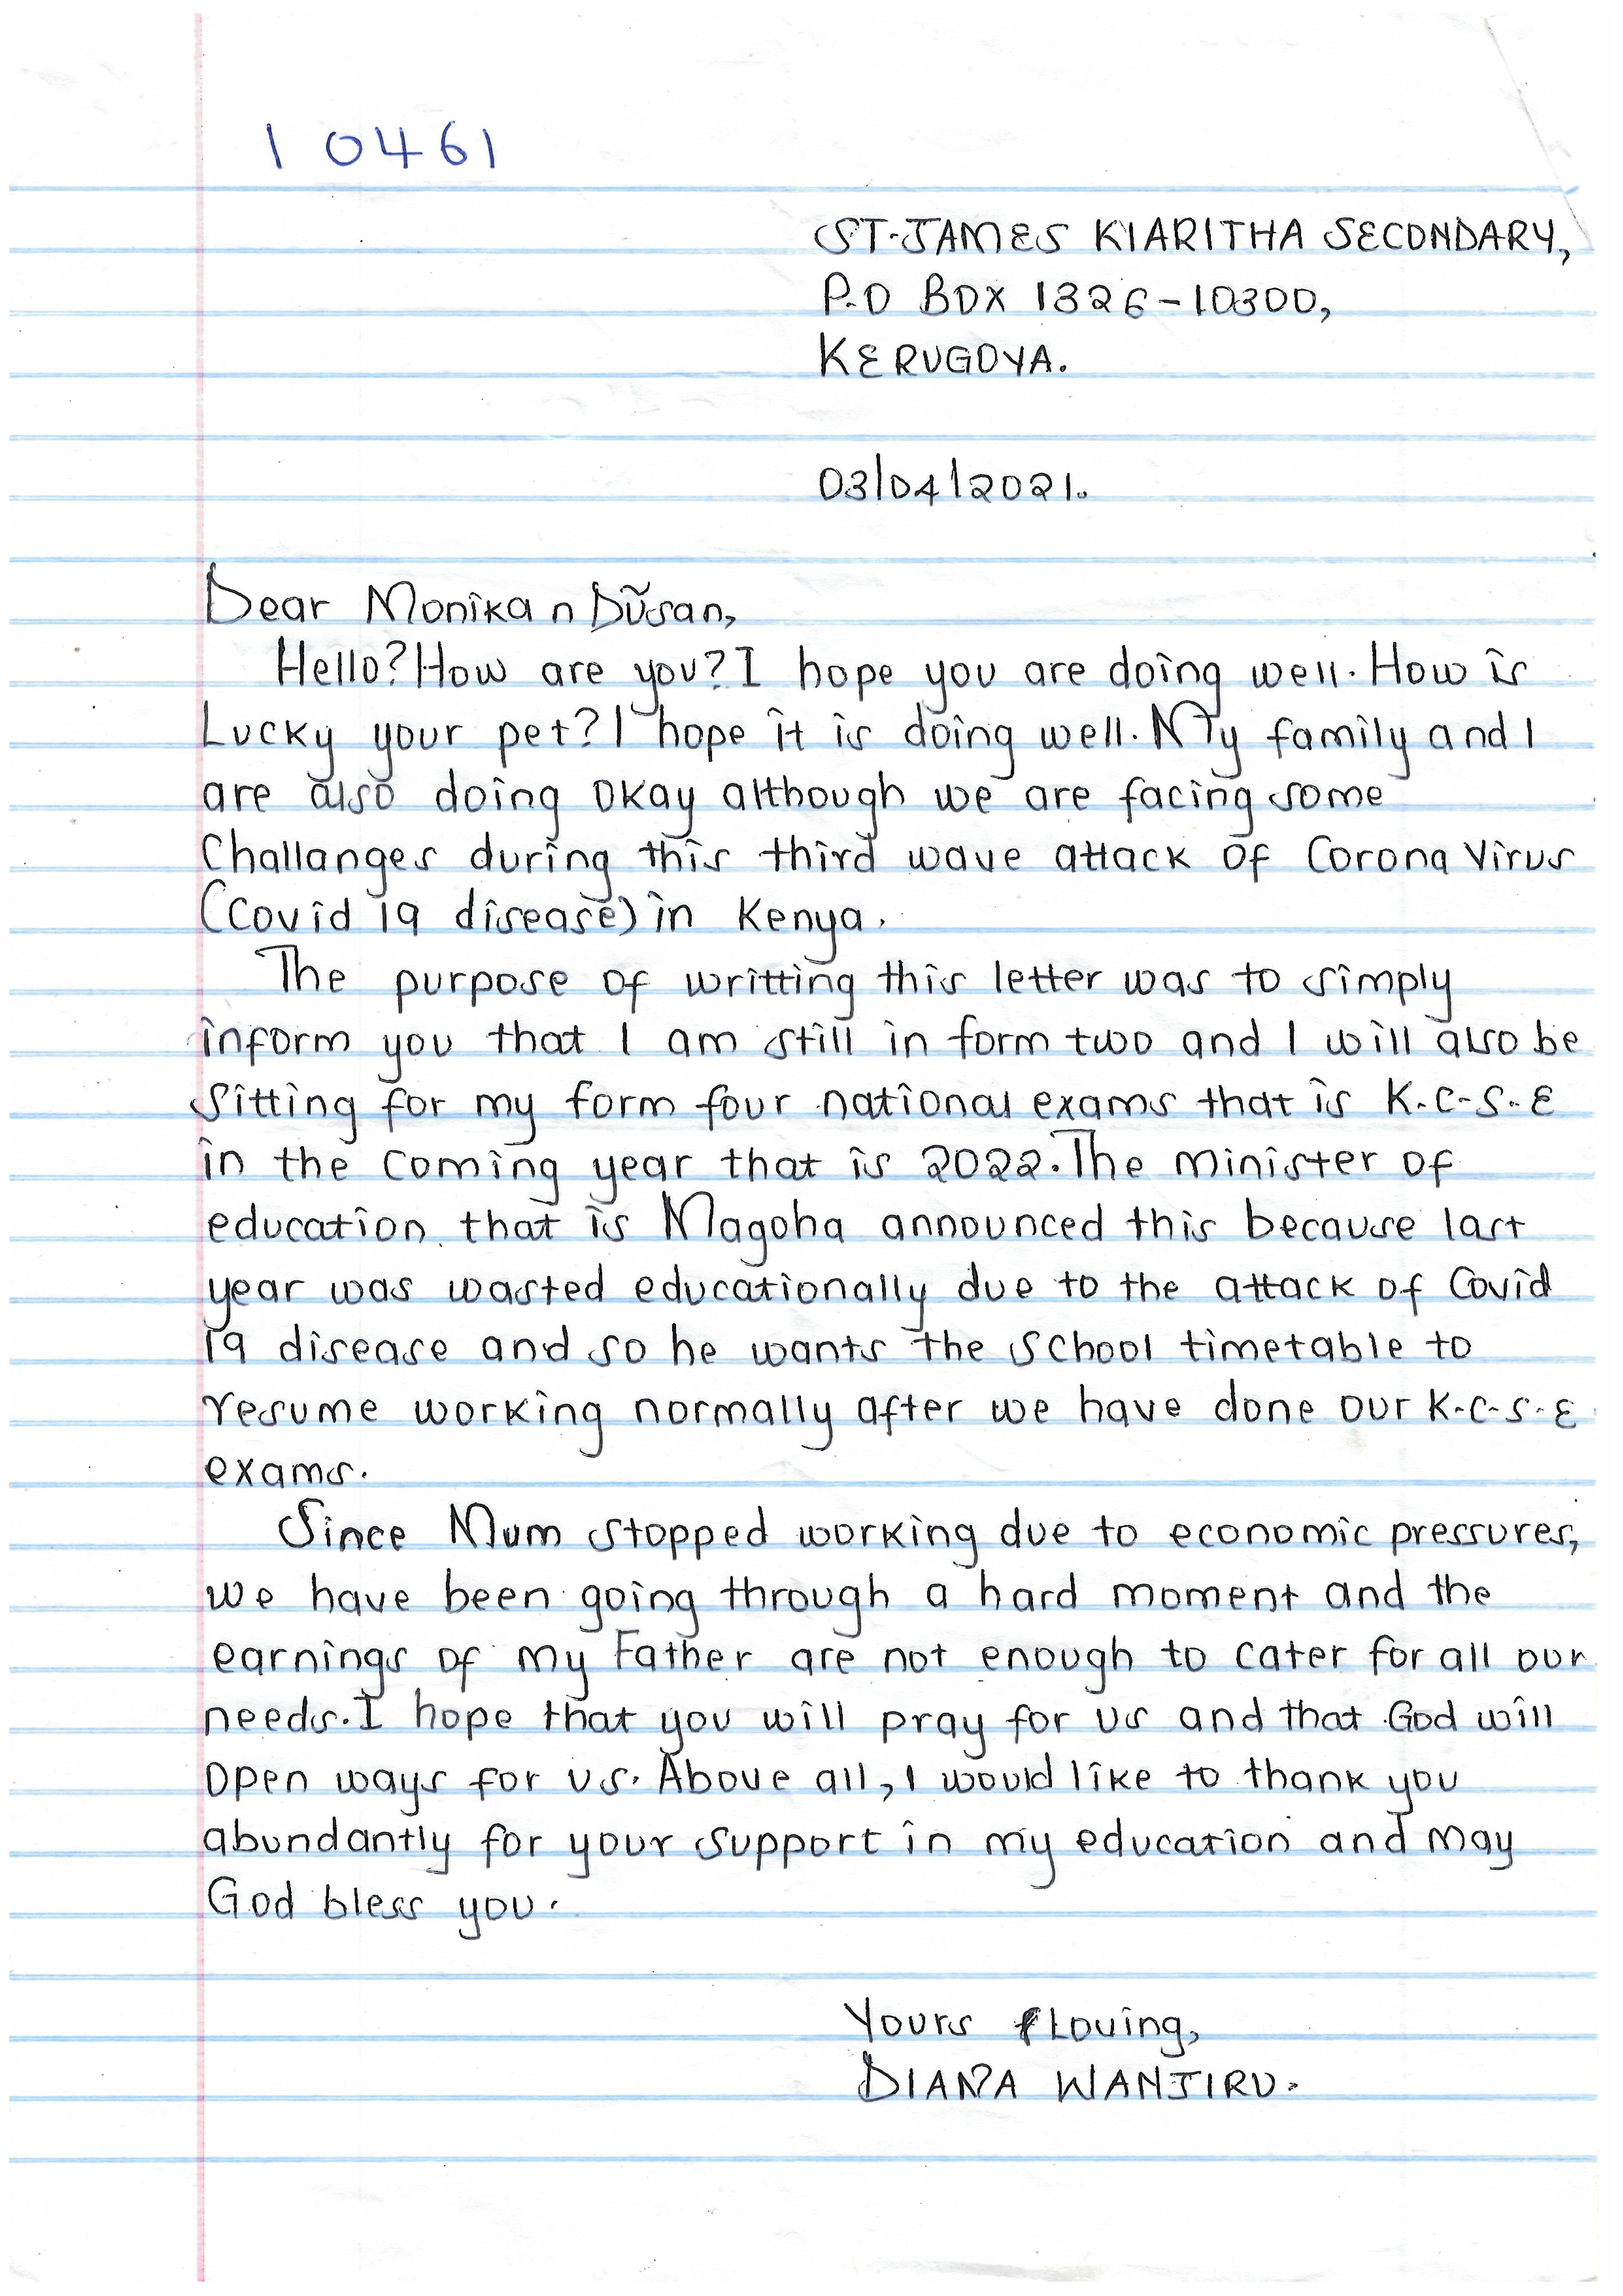 10461
ST. JAMES KIARITHA SECONDARY,
P.O BOX 1326-10300,
KERUGOYA.
03/04/2021.
Dear Monika n Dušan,
Hello? How are you? I hope you are doing well. How is
Lucky your pet? I hope it is doing well. My family and I
are also doing okay although we are facing some
Challanges during this third wave attack of Corona Virus
(Covid 19 disease) in Kenya.
The purpose of writting this letter was to simply
inform you that I am still in form two and I will also be
Sitting for my form four national exams that is K.C.S.E
in the coming year that is 2022. The minister of
education that is Magoha announced this because last
year was wasted educationally due to the attack of Covid
19 disease and so he wants the school timetable to
resume working normally after we have done our K.C.S.E
exams.
Since Mum stopped working due to economic pressures,
we have been going through a hard moment and the
earnings of my Father are not enough to cater for all our
needs. I hope that you will pray for us and that God will
open ways for us. Above all, I would like to thank you
abundantly for your support in my education and may
God bless you.
Yours Loving,
DIANA WANJIRU.